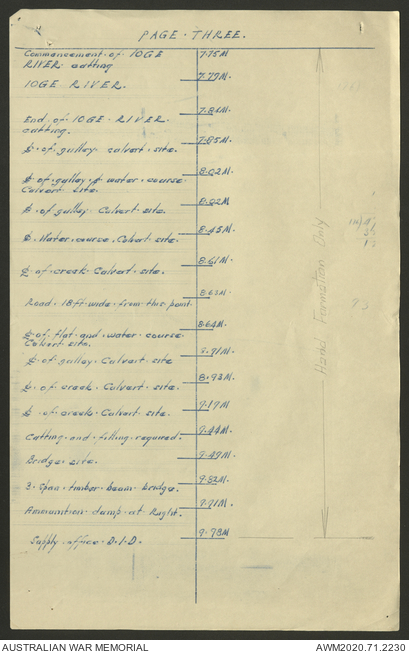 PAGE · THREE.
Commencement of IOGE 7·75M
RIVER cutting
IOGE RIVER. 7·79M.
End of IOGE RIVER 7·84M.
cutting.
₵ of gulley culvert site. 7·85M.
₵ of gulley & water course 8·02M.
Culvert site.
₵ of gulley Culvert site. 8·22M
₵ Water course Culvert site. 8·45M.
₵ of creek Culvert site. 8·61M
Road 18ft wide from this point 8·63M
₵ of flat and water course 8·64M.
Culvert site.
₵ of gulley Culvert site 8·71M
₵ of creek Culvert site. 8·93M.
₵ of creek Culvert site. 9·17M
Cutting and filling required. 9·44M
Bridge site. 9·49M.
3 Span timber beam bridge. 9·52M.
Ammunition dump at Right. 9·71M
Supply office D.I.D. 9·78M
Hand Formation Only
73
AUSTRALIAN WAR MEMORIAL
AWM2020.71.2230